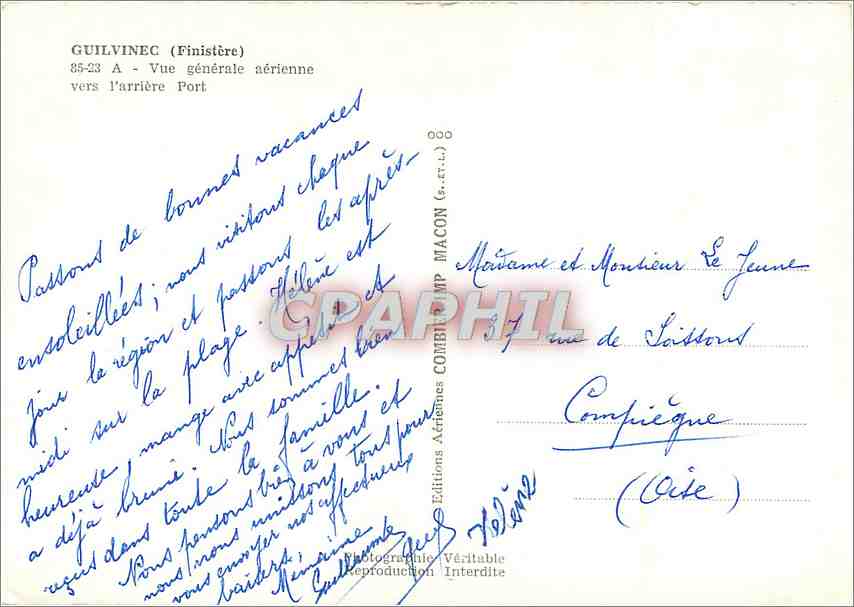 GUILVINEC (Finistère)
85-23 A - Vue générale aérienne
vers l'arrière Port
Passons de bonnes vacances
ensoleillées ; nous visitons chaque
jour la région et passons les après-
midi sur la plage. Hélène est
heureuse, mange avec appétit et
a déjà bruni. Nous sommes bien
reçus dans toute la famille.
Nous pensons bien à vous et
nous nous unissons tous pour
vous envoyer nos affectueux
baisers.
Mémaine
Guillaume Guy Hélène
Editions Aériennes COMBIER IMP MACON (S.-ET-L.)
CPAPHIL
Madame et Monsieur Le Jeune
37 rue de Soissons
Compiègne
(Oise)
Photographie Véritable
Reproduction Interdite